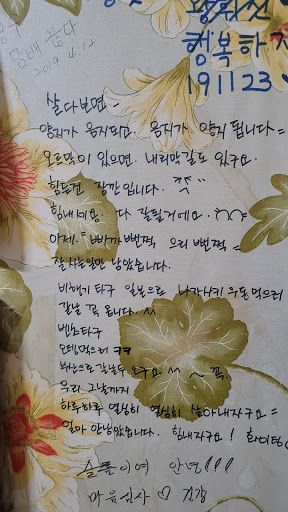 담배 끊다
2019 4.12
행복하자
191123
살다보면~
양지가 음지되고. 음지가 양지 됩니다=
오르막이 있으면. 내리막길도 있구요.
힘든건 잠깐입니다.
힘내세요. 다 잘될거에요.
이제. 삐까뻔쩍 으리뻔쩍=
잘 사는일만 남았습니다.
비행기 타구 일본으로 나가사키 우동 먹으러
갈날 꼭 옵니다. ^^
벤츠타구
오뎅먹으러 ㅋㅋ
부산으로 갈날두 오구요 ^^ ~ 꼭
우리 그날까지
하루하루 열심히 열심히 살아내자구요=
얼마 안남았습니다. 힘내자구요! 화이팅
슬픔이여 안녕!!!
마음심사 ♡